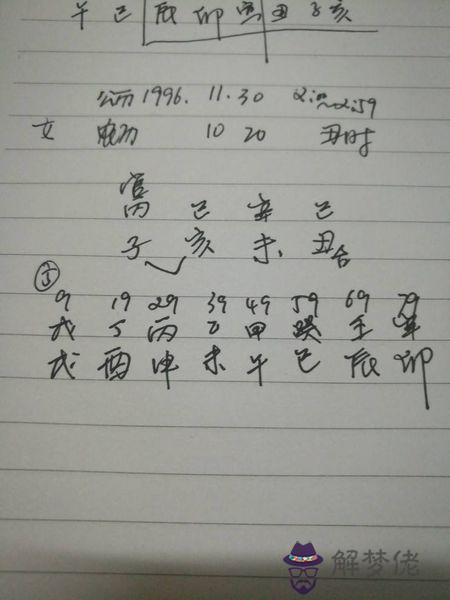 午 巳 辰 卯 寅 丑 子 亥
公历 1996. 11. 30 2:00~2:59
女 农历 10 20 丑时
官
丙 己 辛 己
子 亥 未 丑 合
9 19 29 39 49 59 69 79
戊 丁 丙 乙 甲 癸 壬 辛
戌 酉 申 未 午 巳 辰 卯
解梦佬